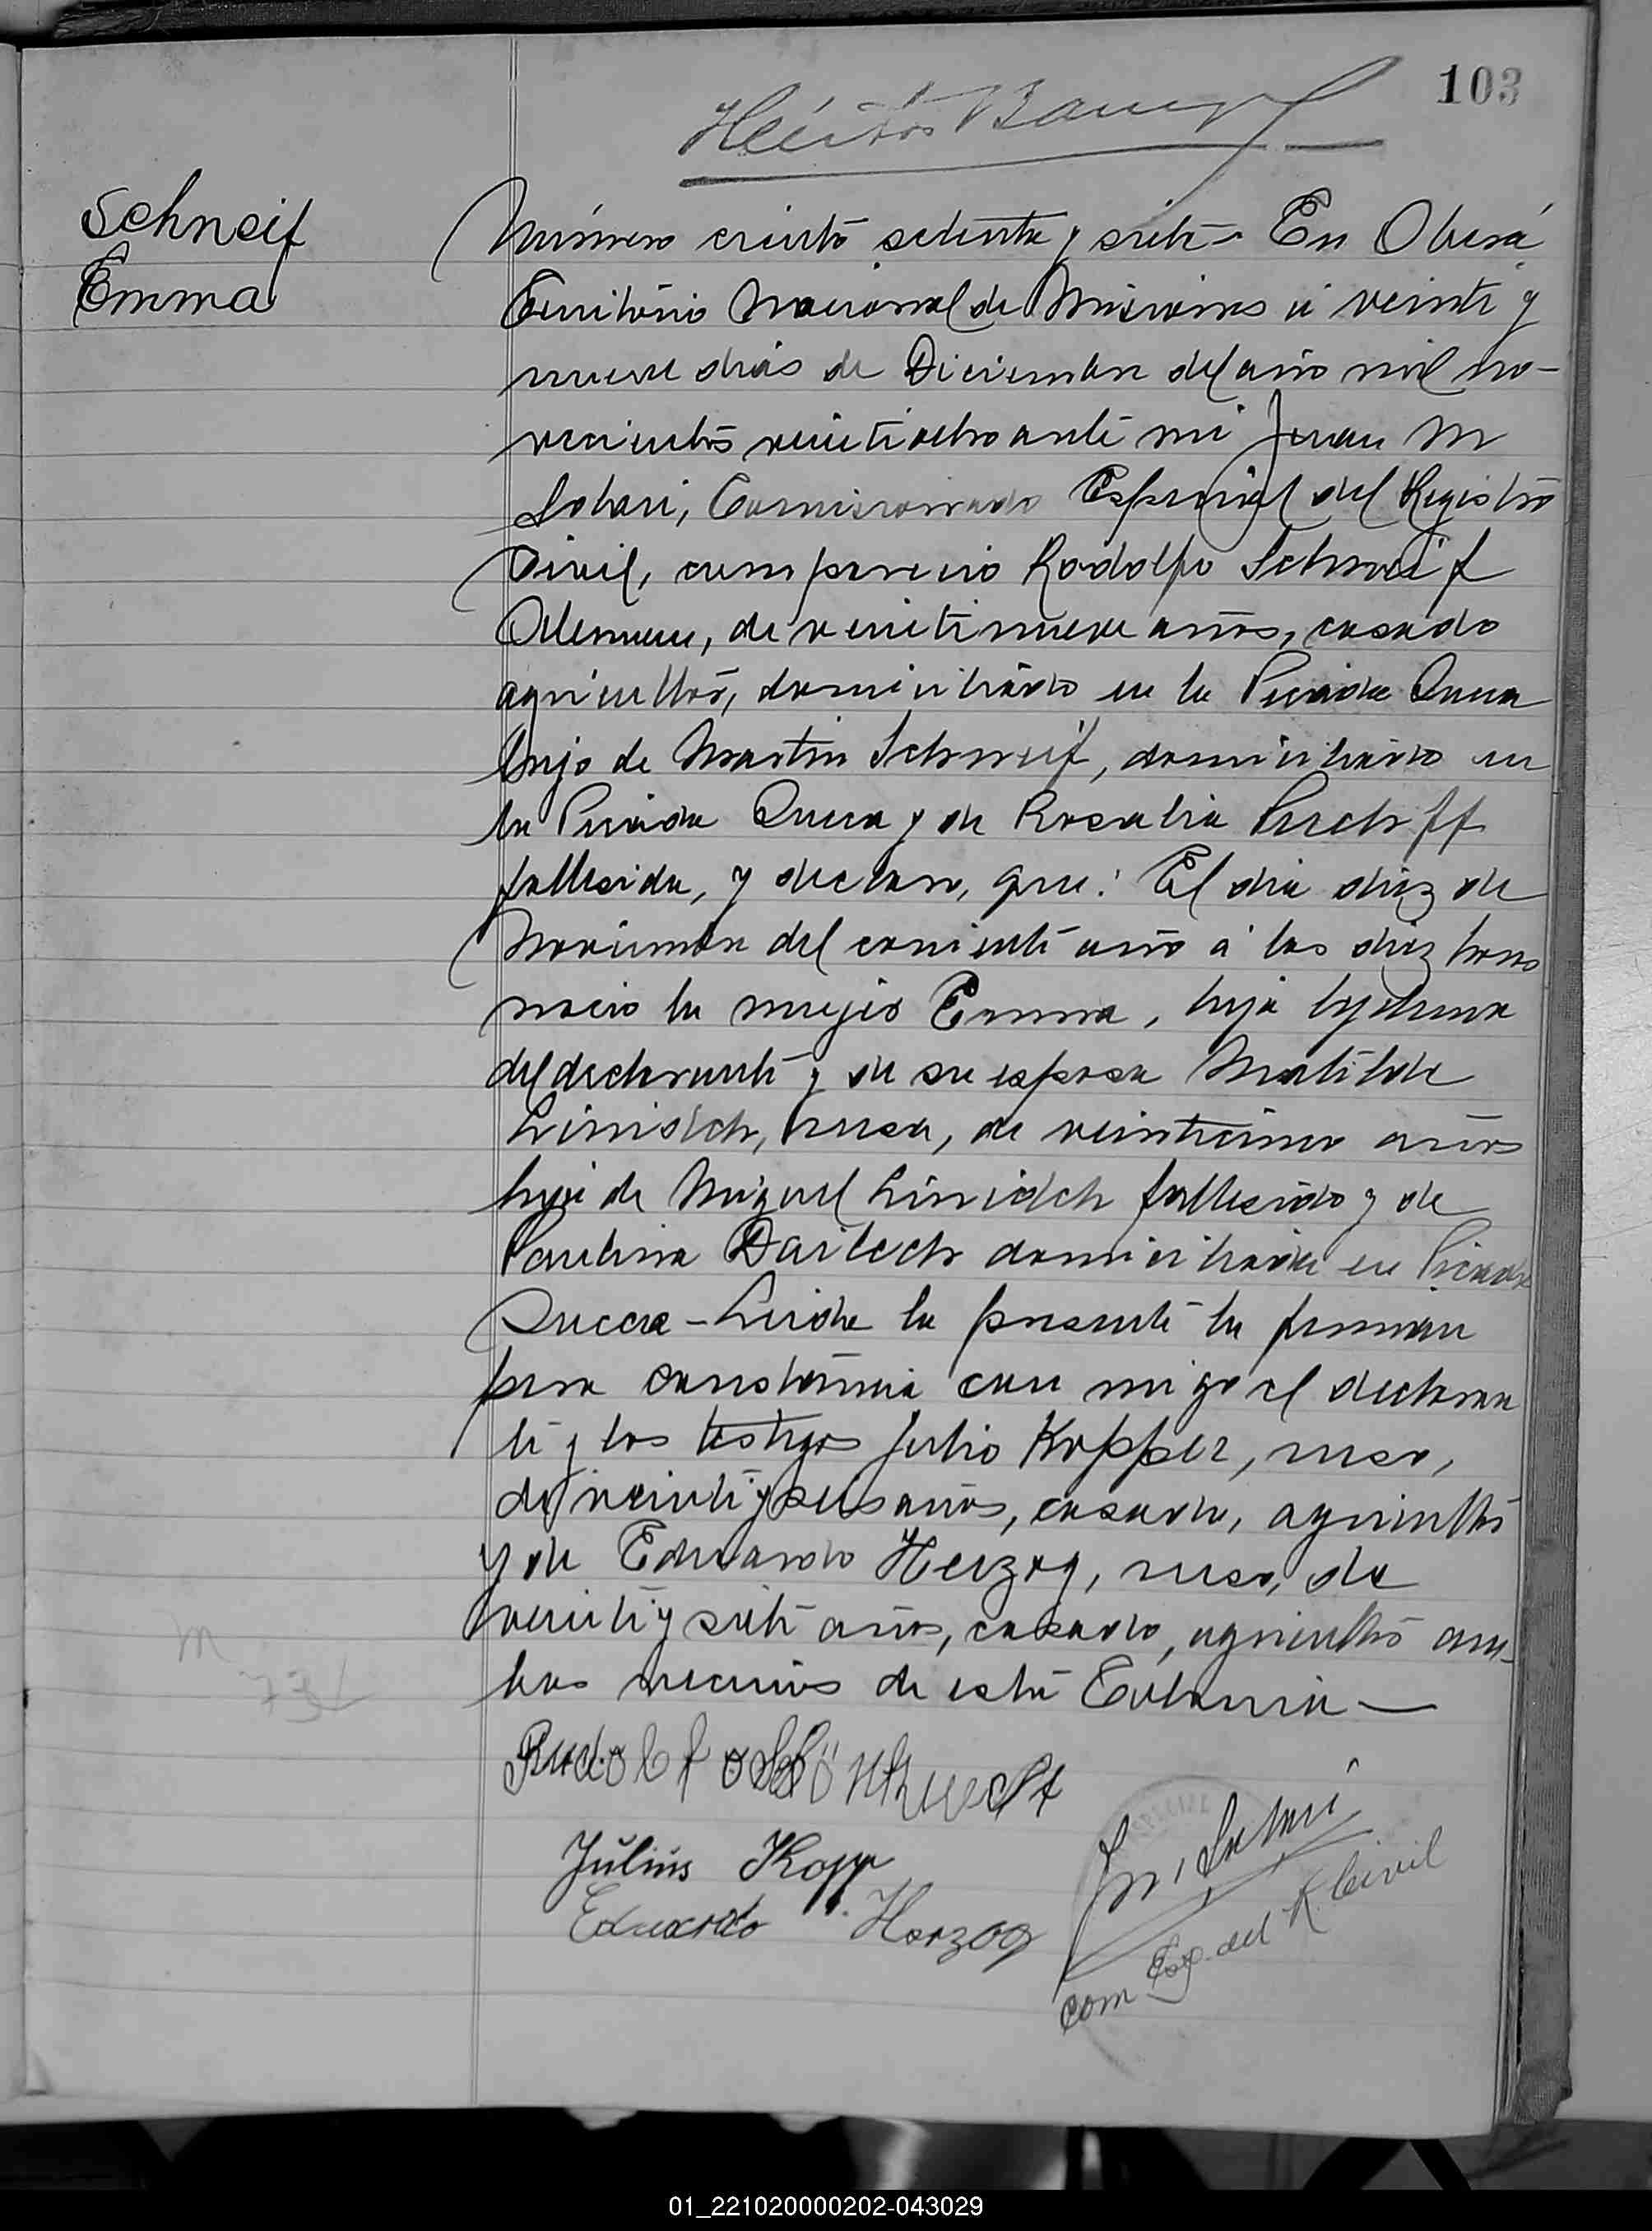 103
Schneif
Emma
Número ciento setenta y siete - En Oberá
Territorio Nacional de Misiones á veinte y
nueve dias de Diciembre del año mil no-
vecientos veintiocho ante mi Juan M
Sotari, Comisionado Especial del Registro
Civil, comparecio Rodolfo Schneif
Aleman, de veintinueve años, casado
agricultor, domiciliado en la Picada Sueca
hijo de Martin Schneif, domiciliado en
la Picada Sueca y de Rosalia
fallesida, y declaro, que: El dia diez de
Noviembre del corriente año á las diez horas
nacio la mujer Emma, hija lejitima
del declarante y de su esposa Matilde
rusa, de veinticinco años
hija de Miguel fallesido y de
Paulina domiciliada en Picada
Sueca - Leida la presente la firman
para constancia con migo el declaran
te y los testigos Julio Kopper, ruso,
de veinte y seis años, casado, agricultor
y de Eduardo Herzog, ruso, de
veinte y siete años, casado, agricultor am-
bos vecinos de esta Colonia —
Rudolf
Julius Kopp
Eduardo Herzog
Com Esp. del R. Civil
01_221020000202-043029